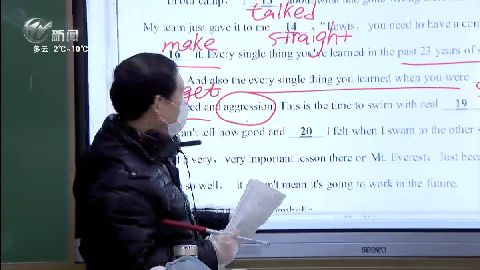 新闻
多云 2℃~10℃
talked
My team just gave it to me 14 "Lewis, you need to have a con
make straight
16 it. Every single thing you've learned in the past 23 years of s
And also the every single thing you learned when you were
get
and aggression. This is the time to swim with real 19
n't tell how good and 20 I felt when I swam to the other s
a very, very important lesson there or Mt. Everest: Just beca
so well, it doesn't mean it's going to work in the future.
seewo